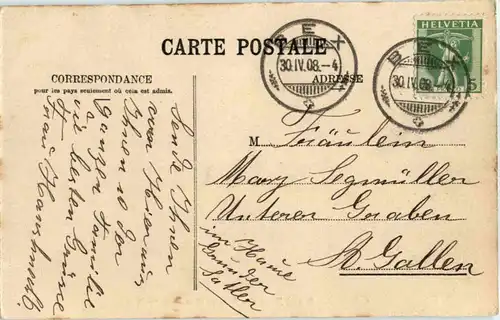 CARTE POSTALE
CORRESPONDANCE
pour les pays seulement où cela est admis.
ADRESSE
HELVETIA
5
BEX
30.IV.08.-4
BEX
30.IV.08.
M
Fräulein
Mary Segmüller
Unterer Graben
St. Gallen
im Hause
der
Sattler
Sende Ihnen
von hier aus
Ihnen so der
Ganzen Familie
viel besten Grüsse
Frau